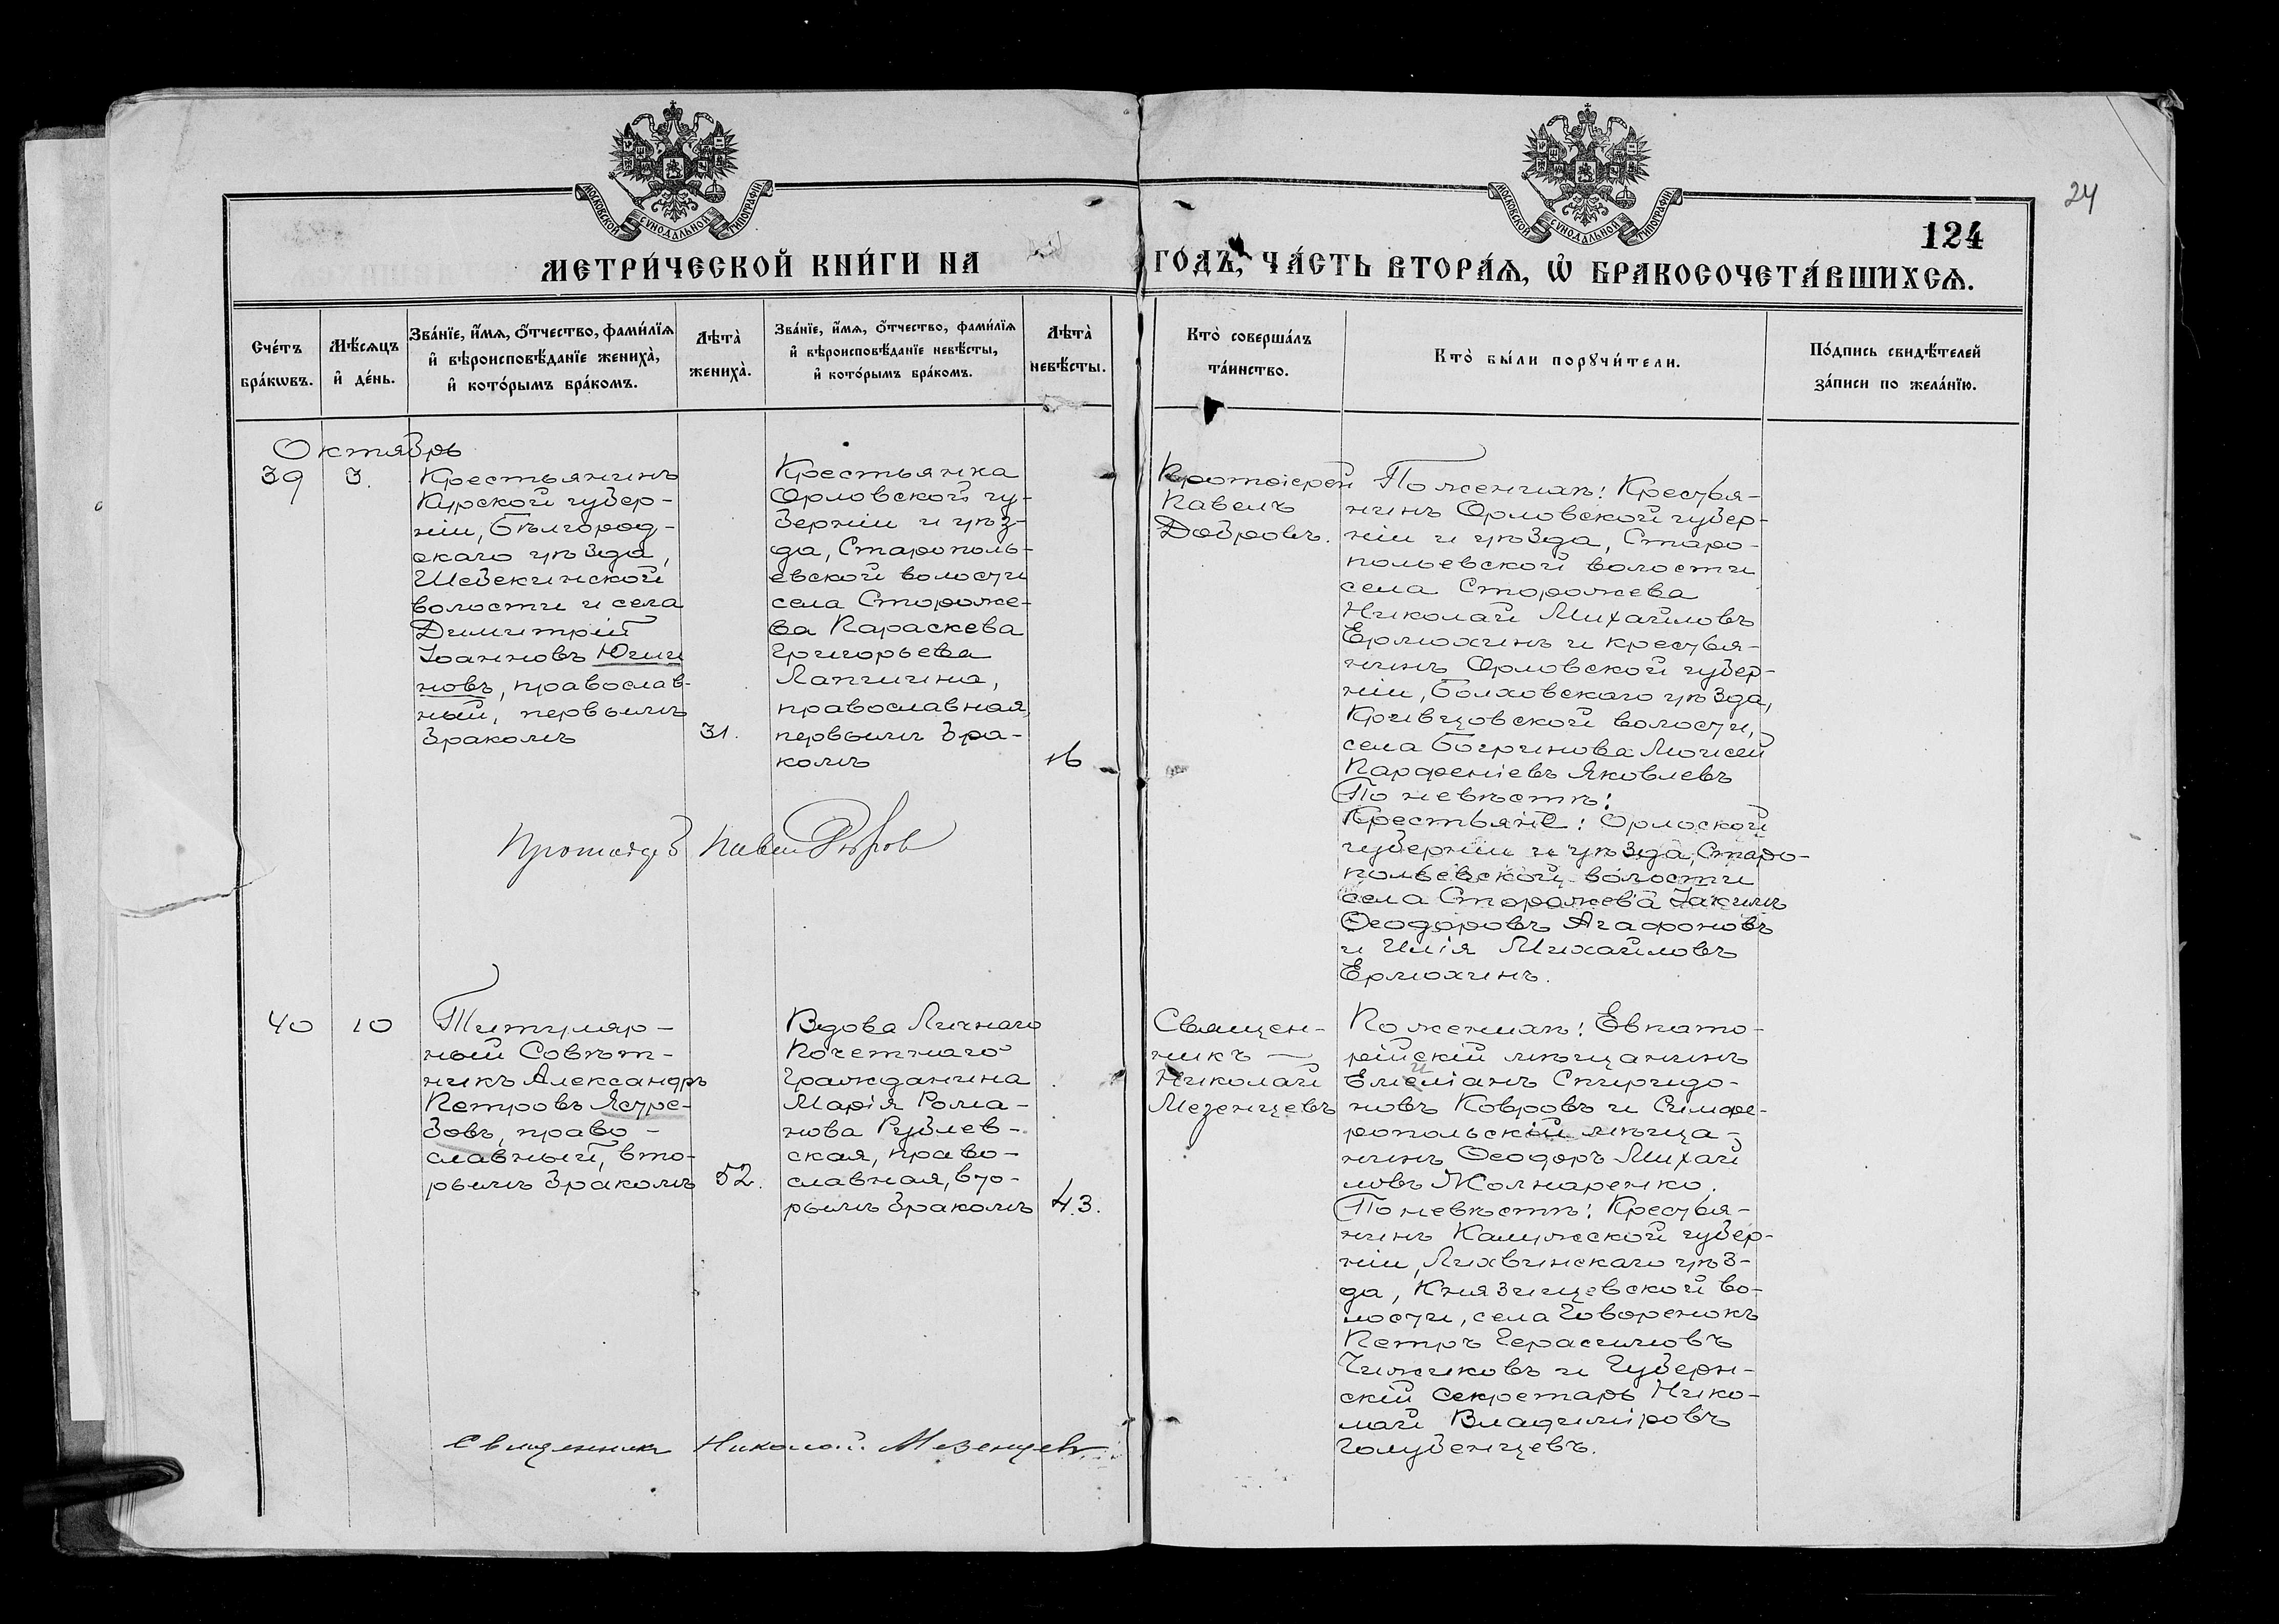 24
124
МОСКОВСКОЙ СѴНОДАЛЬНОЙ ТИПОГРАФІИ
МОСКОВСКОЙ СѴНОДАЛЬНОЙ ТИПОГРАФІИ
МЕТРИ́ЧЕСКОЙ КНИ́ГИ НА ГО́ДЪ, ЧА́СТЬ ВТОРА́Ѧ, Ѡ҆ БРАКОСОЧЕТА́ВШИХСѦ.
Сче́тъ
бра́кѡвъ.
Мѣ́сѧцъ
и҆ де́нь.
Зва́нїе, и҆́мѧ, ѻ҆́тчество, фами́лїѧ
и҆ вѣроисповѣ́данїе жениха̀,
и҆ кото́рымъ бра́комъ.
Лѣта̀
жениха̀.
Зва́нїе, и҆́мѧ, ѻ҆́тчество, фами́лїѧ
и҆ вѣроисповѣ́данїе невѣ́сты,
и҆ кото́рымъ бра́комъ.
Лѣта̀
невѣ́сты.
Кто̀ соверша́лъ
та́инство.
Кто̀ бы́ли порꙋчи́тели.
По́дпись свидѣ́телей
за́писи по жела́нїю.
Октябрь
39
3.
Крестьянинъ
Курской губер-
ніи, Бѣлгород-
скаго уѣзда,
Шебекинской
волости и села
Димитрій
Іоанновъ Югни
новъ, православ-
ный, первымъ
бракомъ
31.
Крестьянка
Орловской гу-
берніи и уѣз-
да, Старополь-
евской волости
села Стороже-
ва Параскева
Григорьева
Лапшина,
православная,
первымъ бра-
комъ
16
Протоіерей
Павелъ
Добровъ.
По женихѣ: Крестья-
нинъ Орловской губер-
ніи и уѣзда, Старо-
польевской волости
села Сторожева
Николай Михайловъ
Ермохинъ и крестья-
нинъ Орловской губер-
ніи, Болховскаго уѣзда,
Кривцовской волости,
села Багринова Моисей
Парѳеніевъ Яковлевъ
По невѣстѣ:
Крестьяне: Орлоской
губерніи и уѣзда, Старо-
польевской волости
села Сторожева Іакимъ
Ѳеодоровъ Агафоновъ
и Илія Михайловъ
Ермохинъ.
Павел Добров
40
10
Титуляр-
ный Совѣт-
никъ Александръ
Петровъ Ястре-
бовъ, право-
славный, вто-
рымъ бракомъ
52.
Вдова Личнаго
Почетнаго
Гражданина
Марія Рома-
нова Рублев-
ская, право-
славная, вто-
рымъ бракомъ
43.
Священ-
никъ —
Николай
Мезенцевъ
По женихѣ: Евпато-
рійскій мѣщанинъ
Емиліанъ Спиридо-
новъ Ковровъ и Симфе-
ропольскій мѣща-
нинъ Ѳеодоръ Михай
ловъ Жолнаренко.
По невѣстѣ: Крестья-
нинъ Калужской губер-
ніи, Лихвинскаго уѣз-
да, Князищевской во-
лости, села Говоренокъ
Петръ Герасимовъ
Чижиковъ и Губерн-
скій секретарь Нико-
лай Владиміровъ
Голубенцевъ.
Священникъ Николай Мезенцевъ